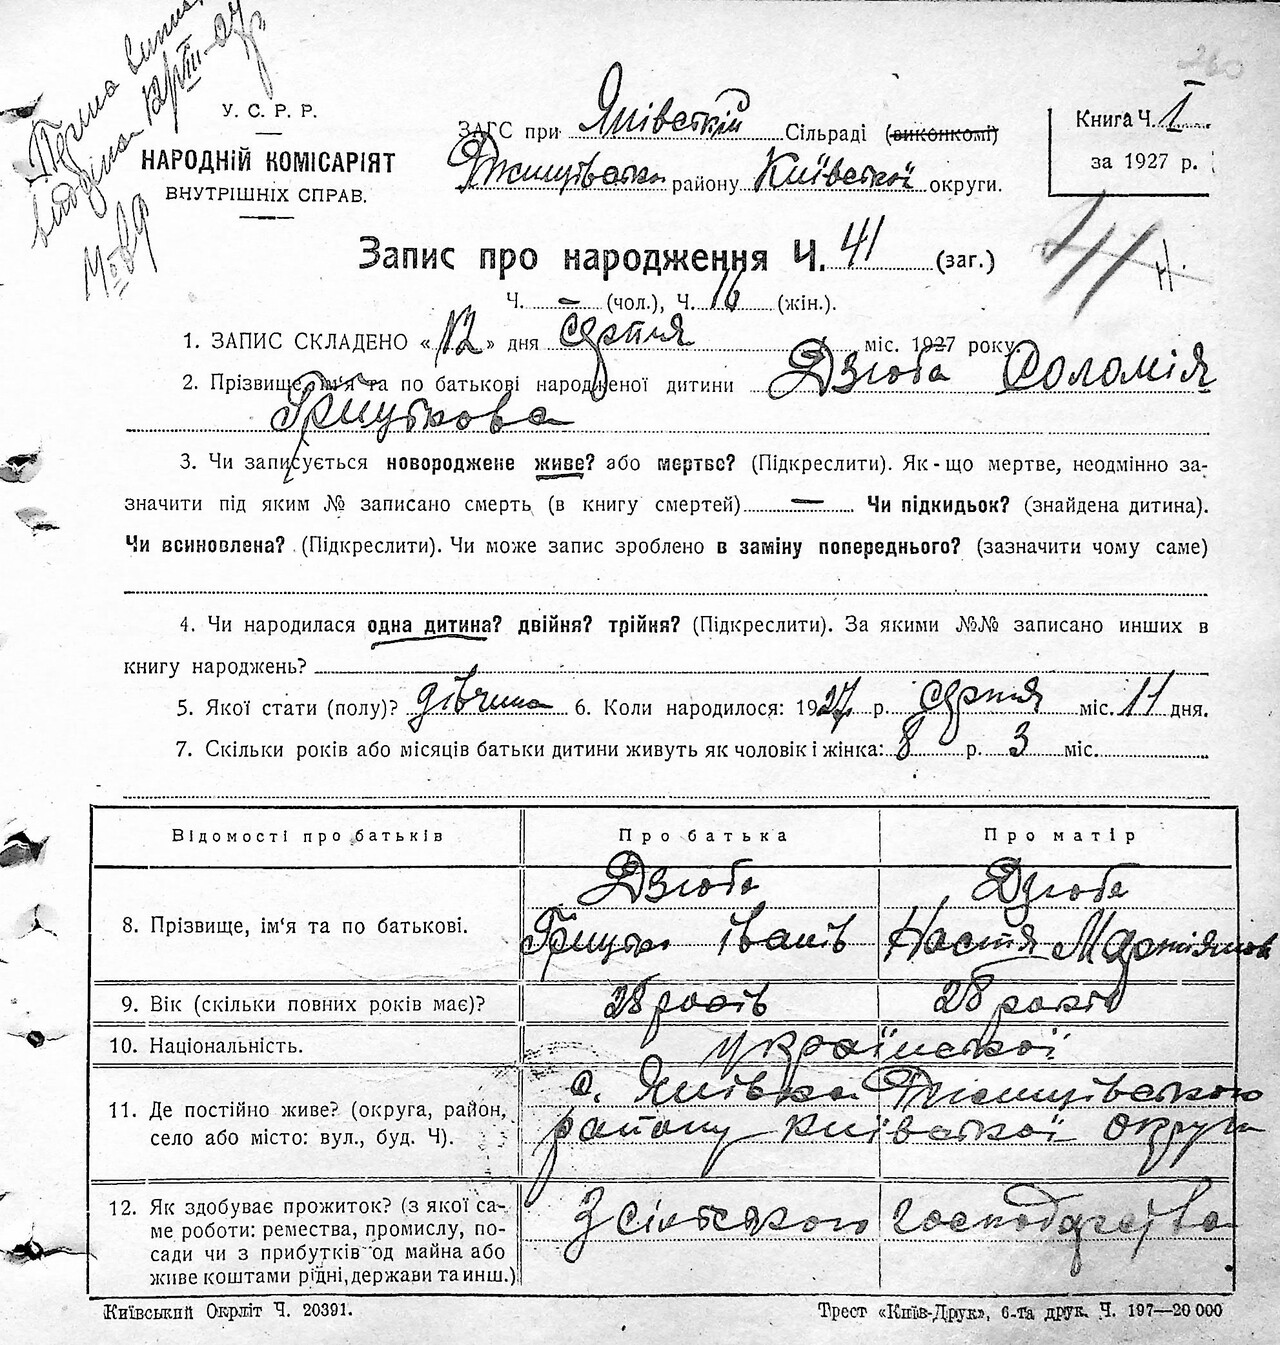 260
Перша випис
видана 12/III
У. С. Р. Р.
НАРОДНІЙ КОМІСАРІЯТ
ВНУТРІШНІХ СПРАВ.
ЗАГС при Янівській Сільраді (виконкомі)
району Київської округи.
Книга Ч. I
за 1927 р.
Запис про народження Ч. 41 (заг.)
41 н.
Ч. – (чол.), Ч. 16 (жін.).
1. ЗАПИС СКЛАДЕНО «12» дня серпня міс. 1927 року.
2. Прізвище, ім'я та по батькові народженої дитини Дзюба Соломія
Грицькова
3. Чи записується новороджене живе? або мертве? (Підкреслити). Як-що мертве, неодмінно за-
значити під яким № записано смерть (в книгу смертей) — Чи підкидьок? (знайдена дитина).
Чи всиновлена? (Підкреслити). Чи може запис зроблено в заміну попереднього? (зазначити чому саме)
4. Чи народилася одна дитина? двійня? трійня? (Підкреслити). За якими №№ записано инших в
книгу народжень?
5. Якої стати (полу)? дівчина 6. Коли народилося: 1927 р. серпня міс. 11 дня.
7. Скільки років або місяців батьки дитини живуть як чоловік і жінка: 8 р. 3 міс.
Відомості про батьків Про батька Про матір
8. Прізвище, ім'я та по батькові.
Дзюба Дзюба
Грицько Іванів Настя Мартіянов
9. Вік (скільки повних років має)? 28 років 28 років
10. Національність. української
11. Де постійно живе? (округа, район,
село або місто: вул., буд. Ч).
с. Янівка
району Київської округи
12. Як здобуває прожиток? (з якої са-
ме роботи: ремества, промислу, по-
сади чи з прибутків од майна або
живе коштами рідні, держави та инш.)
З сільського господарства
Київський Окрліт Ч. 20391.
Трест «Київ-Друк», 6-та друк. Ч. 197—20 000